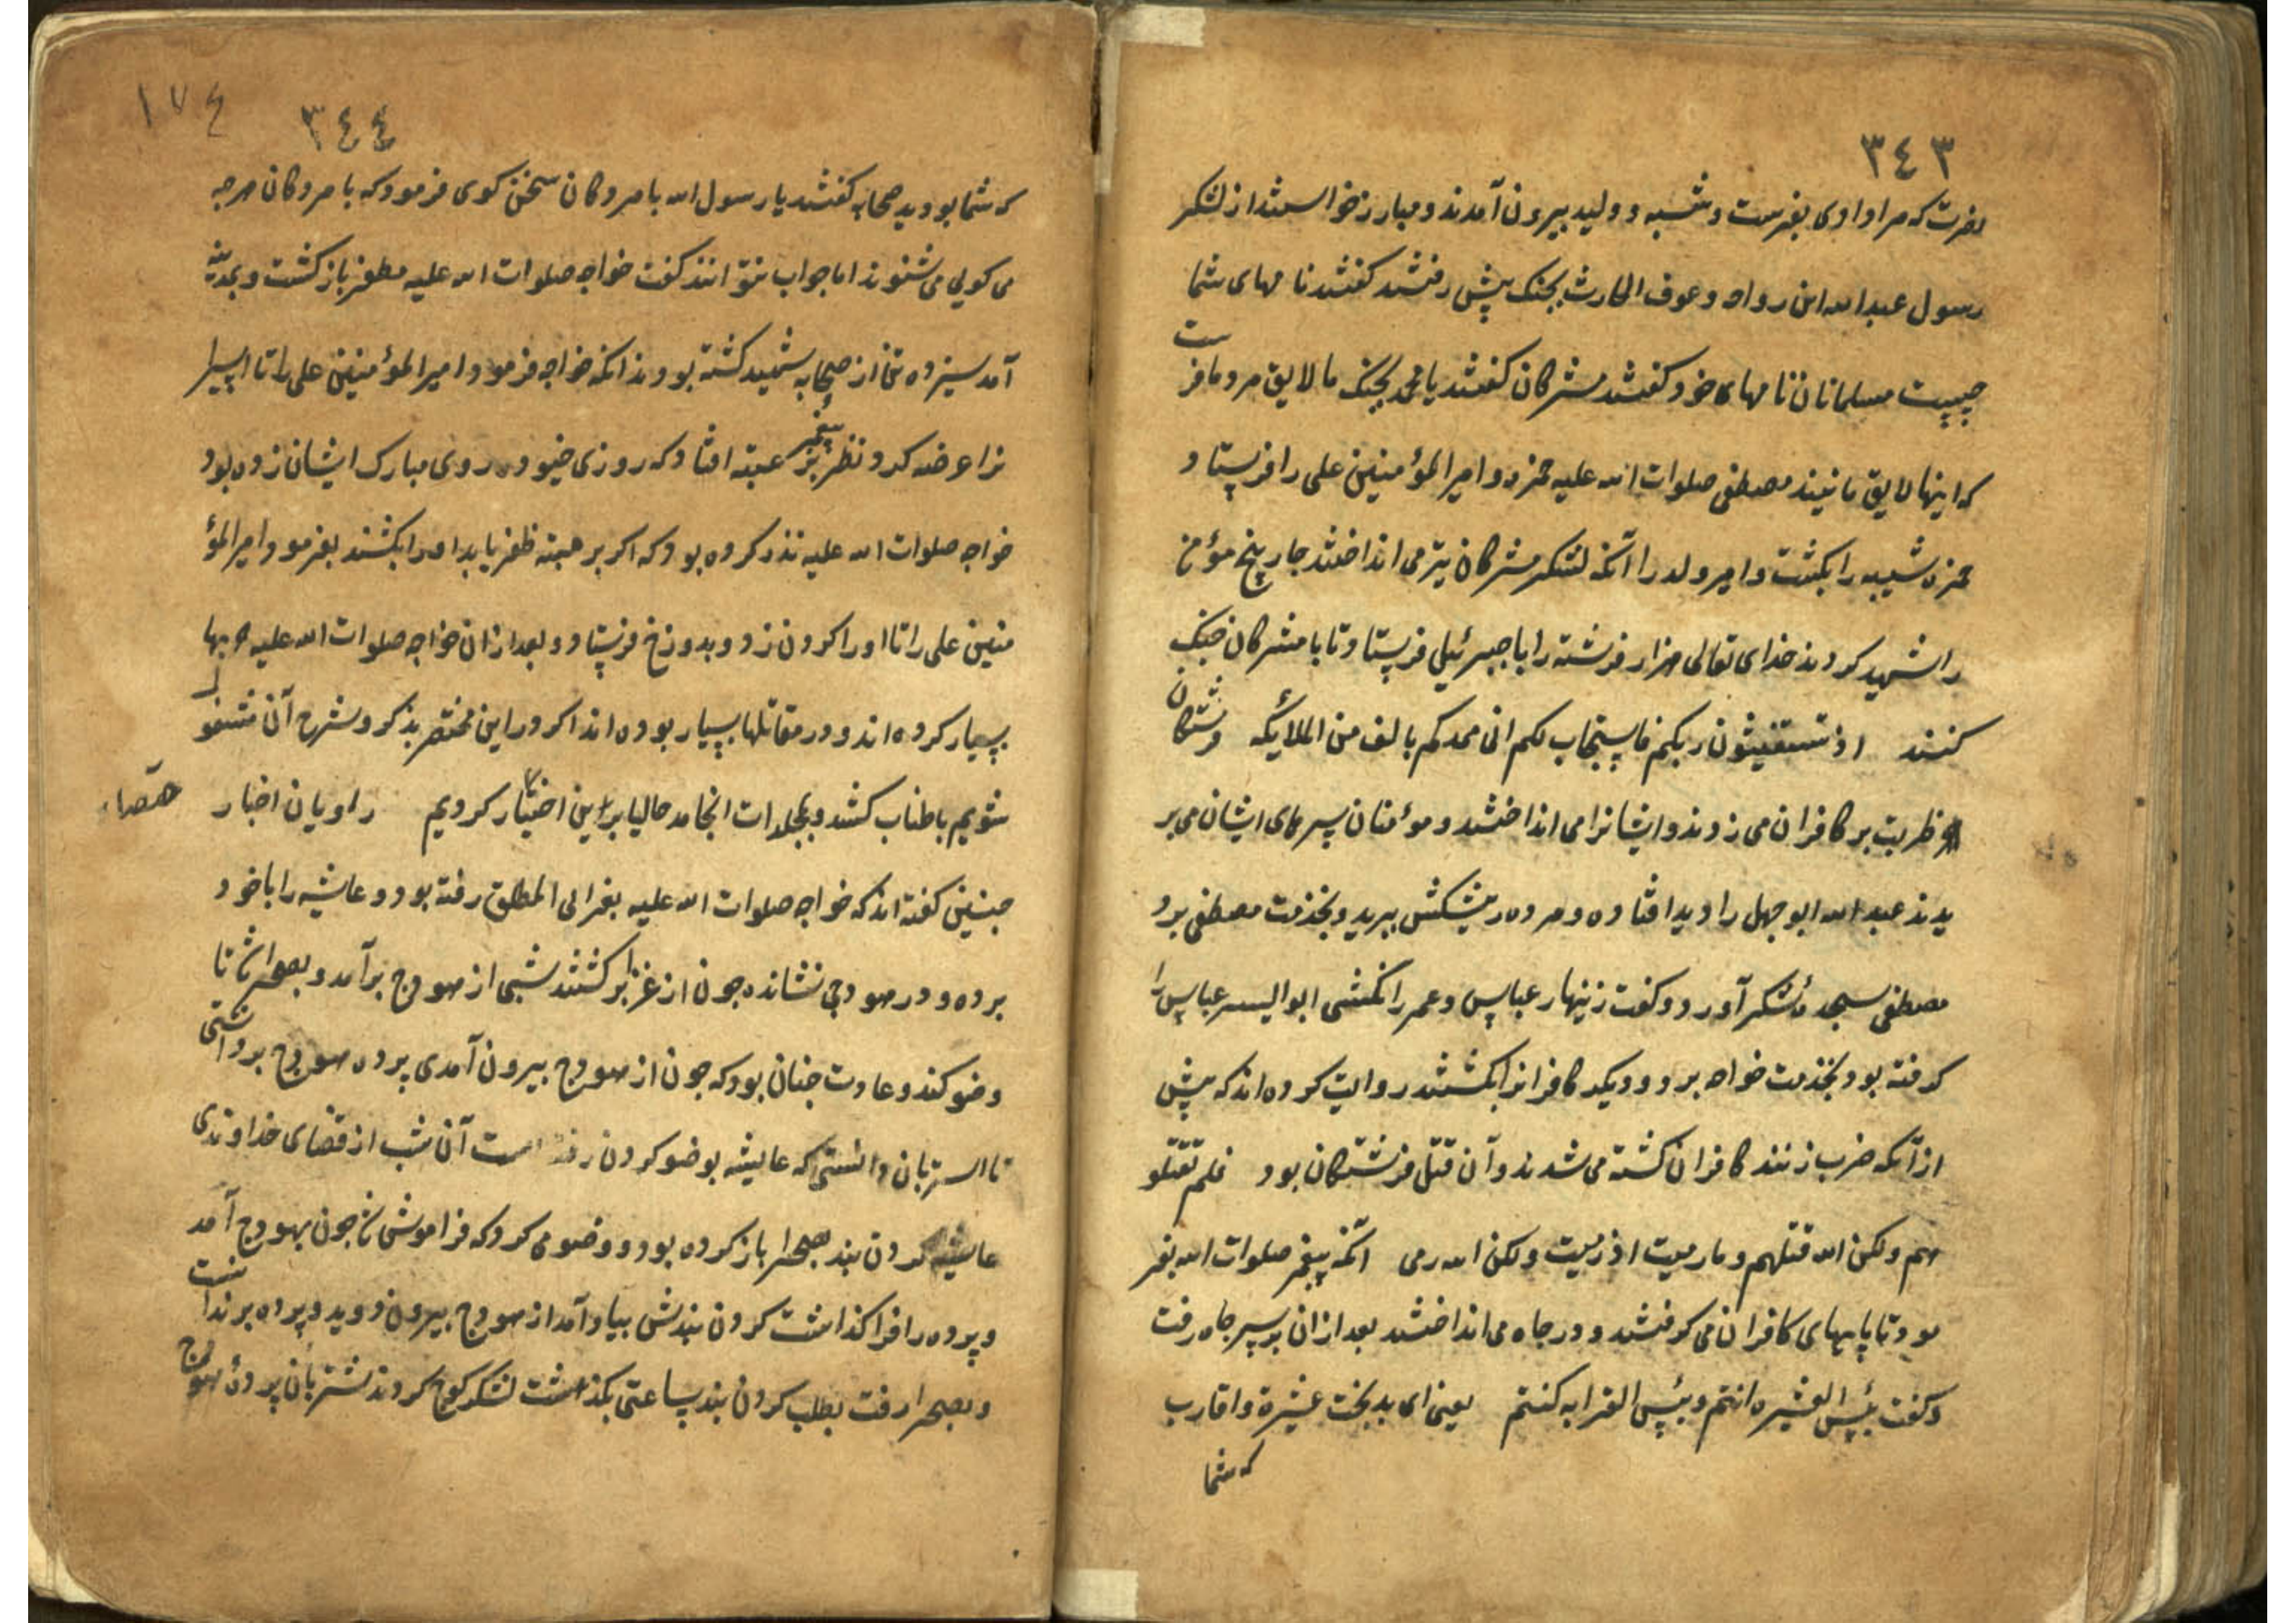 ٣٤٣
نصرت که مرا دادی بفرست و شیبه و ولید بیرون آمدند و مبارز خواستند از لشکر
رسول عبد الله ابن رواحه و عوف الحارث بجنک پیش رفتند کفتند نامهای شما
چیست مسلمانان نامهای خود کفتند مشرکان کفتند یا محمد بجنک ما لایق مردما فرست
که اینها لایق ما نیند مصطفی صلوات الله علیه حمزه و امیر المؤمنین علی را فرستاد
حمزه شیبه را بکشت و امیر ولد را آنکه لشکر مشرکان تیر می انداختند چار پنج مؤمن
را شهید کردند خدای تعالی هزار فرشته را با جبرئیل فرستاد تا با مشرکان جنک
کنند اذ تستغیثون ربکم فاستجاب لکم انی ممدکم بالف من الملائکه فرشتکان
ظربت بر کافران می زدند و ایشانرا می انداختند و مومنان سرهای ایشان می بر
یدند عبد الله ابو جهل را دید افتاده و مرده ریشکش ببرید و بخدمت مصطفی برد
مصطفی سجدهٔ شکر آورد و کفت زینهار عباس و عمر را نکشی ابو الیسر عباس را
کرفته بود بخدمت خواجه برد و دیکر کافرانرا بکشتند روایت کرده اند که پیش
از آنکه ضرب زنند کافران کشته می شدند و آن قتل فرشتکان بود فلم تقتلو
هم ولکن الله قتلهم و ما رمیت اذ رمیت ولکن الله رمی آنکه پیغمبر صلوات الله بفر
مود تا پایهای کافران می کرفتند و در چاه می انداختند بعد ازان بر سر چاه رفت
و کفت بئس العشیره انتم و بئس القرابه کنتم یعنی ای بدبخت عشیرة و اقارب
که شما
١٧٤
٣٤٤
که شما بودید صحابه کفتند یا رسول الله با مردکان سخن کوی فرمود که با مردکان هرچه
می کویی می شنوند اما جواب نتوانند کفت خواجه صلوات الله علیه مظفر بازکشت و بمدینه
آمد سیزده تن از صحابه شهید کشته بودند آنکه خواجه فرمود امیر المؤمنین علی را تا اسیرا
نرا عرضه کرد نظر پیغمبر بر عتبه افتاد که روزی خیو در روی مبارک ایشان زده بود
خواجه صلوات الله علیه نذر کرده بود که اکر بر عتبه ظفر یابد او را بکشند بفرمود امیر المؤ
منین علی را تا او را کردن زد و بدوزخ فرستاد و بعد ازان خواجه صلوات الله علیه حربها
بسیار کرده اند و در مقاتلها بسیار بوده اند اکر در این مختصر بذکر و شرح آن مشغول
شویم باطناب کشد و بمجلدات انجامد حالیا براین اختیار کردیم راویان اخبار
چنین کفته اند که خواجه صلوات الله علیه بغزا بنی المطلق رفته بود و عایشه را با خود
برده و در هودجی نشانده چون از غزا برکشتند شبی از هودج برآمد و بصحرا شد تا
وضو کند و عادت چنان بود که چون از هودج بیرون آمدی پرده هودج برداشتی
تا استربان دانستی که عایشه بوضو کردن رفته است آن شب از قضای خداوندی
عایشه کردن بند بصحرا باز کرده بود و وضو می کرد که فراموش چون بهودج آمد
و پرده را فرا کذاشت کردن بندش بیاد آمد از هودج بیرون دوید و پرده برنداشت
و بصحرا رفت بطلب کردن بند ساعتی بکذشت لشکر کوچ کردند شتربان پردهٔ هودج